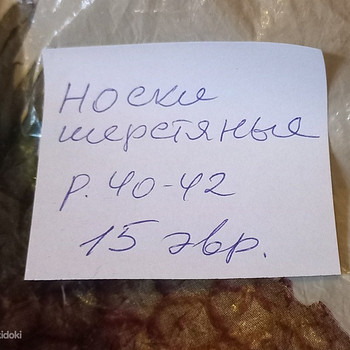 Носки
шерстяные
р. 40-42
15 эвр.
kidoki